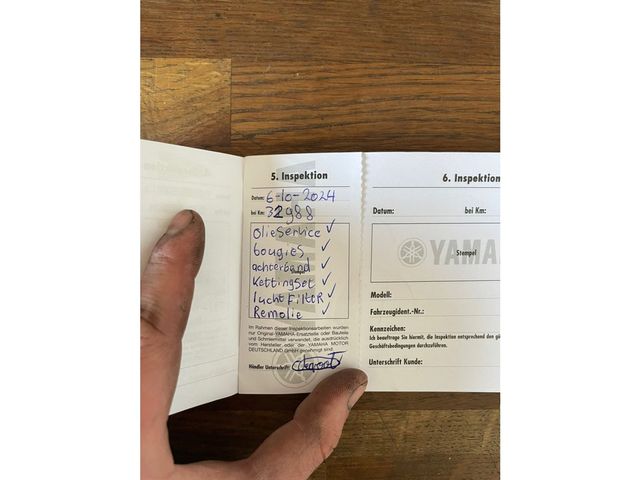 5. Inspektion
Datum: 6-10-2024
bei Km: 32988
Olieservice ✓
bougies ✓
achterband ✓
Stempel
Kettingset ✓
luchtFilteR ✓
Remolie ✓
YAMAHA
Im Rahmen dieser Inspektionsarbeiten wurden
nur Original-YAMAHA-Ersatzteile oder Bauteile
und Schmiermittel verwendet, die ausdrücklich
vom Hersteller oder der YAMAHA MOTOR
DEUTSCHLAND GmbH genehmigt sind.
Händler Unterschrift:
6. Inspektion
Datum:
bei Km:
YAMA
Stempel
Modell:
Fahrzeugident.-Nr.:
Kennzeichen:
Ich beauftrage Sie hiermit, die Inspektion entsprechend den
Geschäftsbedingungen durchzuführen.
Unterschrift Kunde: